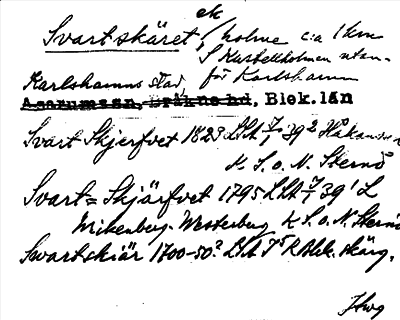 Svartskäret, ek
holme c:a 1 km
S Kastellholmen utan-
för Karlshamn
Karlshamns stad,
Asarums sn, Bräkne hd, Blek. län
Svart Skjerfvet 1823 LSA 7/1 39² Håkansson
K. S. o. N. Sternö
Svart= Skjärfvet 1795 LSA 7/1 39¹ L
Wikenberg. Westerberg K S. o. N. Sternö
Swartskiär 1700-50? LSA 75 Blek. skärg.